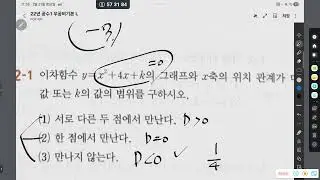 57 31 84
22년 공수1 부공비기본 L
(-3)
=0
2-1 이차함수 y=x²+4x+k의 그래프와 x축의 위치 관계가 다
값 또는 k의 값의 범위를 구하시오.
(1) 서로 다른 두 점에서 만난다. D>0
(2) 한 점에서 만난다. D=0
(3) 만나지 않는다. D<0 ✓
1/4